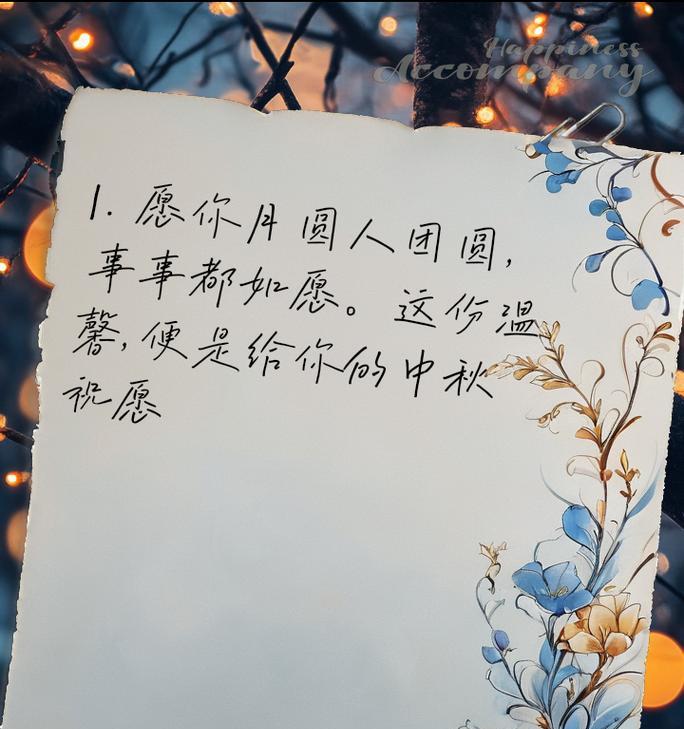 Happiness
Accompany
1. 愿你月圆人团圆,
事事都如愿。这份温
馨,便是给你的中秋
祝愿